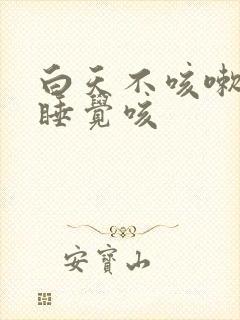 白天不咳嗽
睡覺咳
安寶山